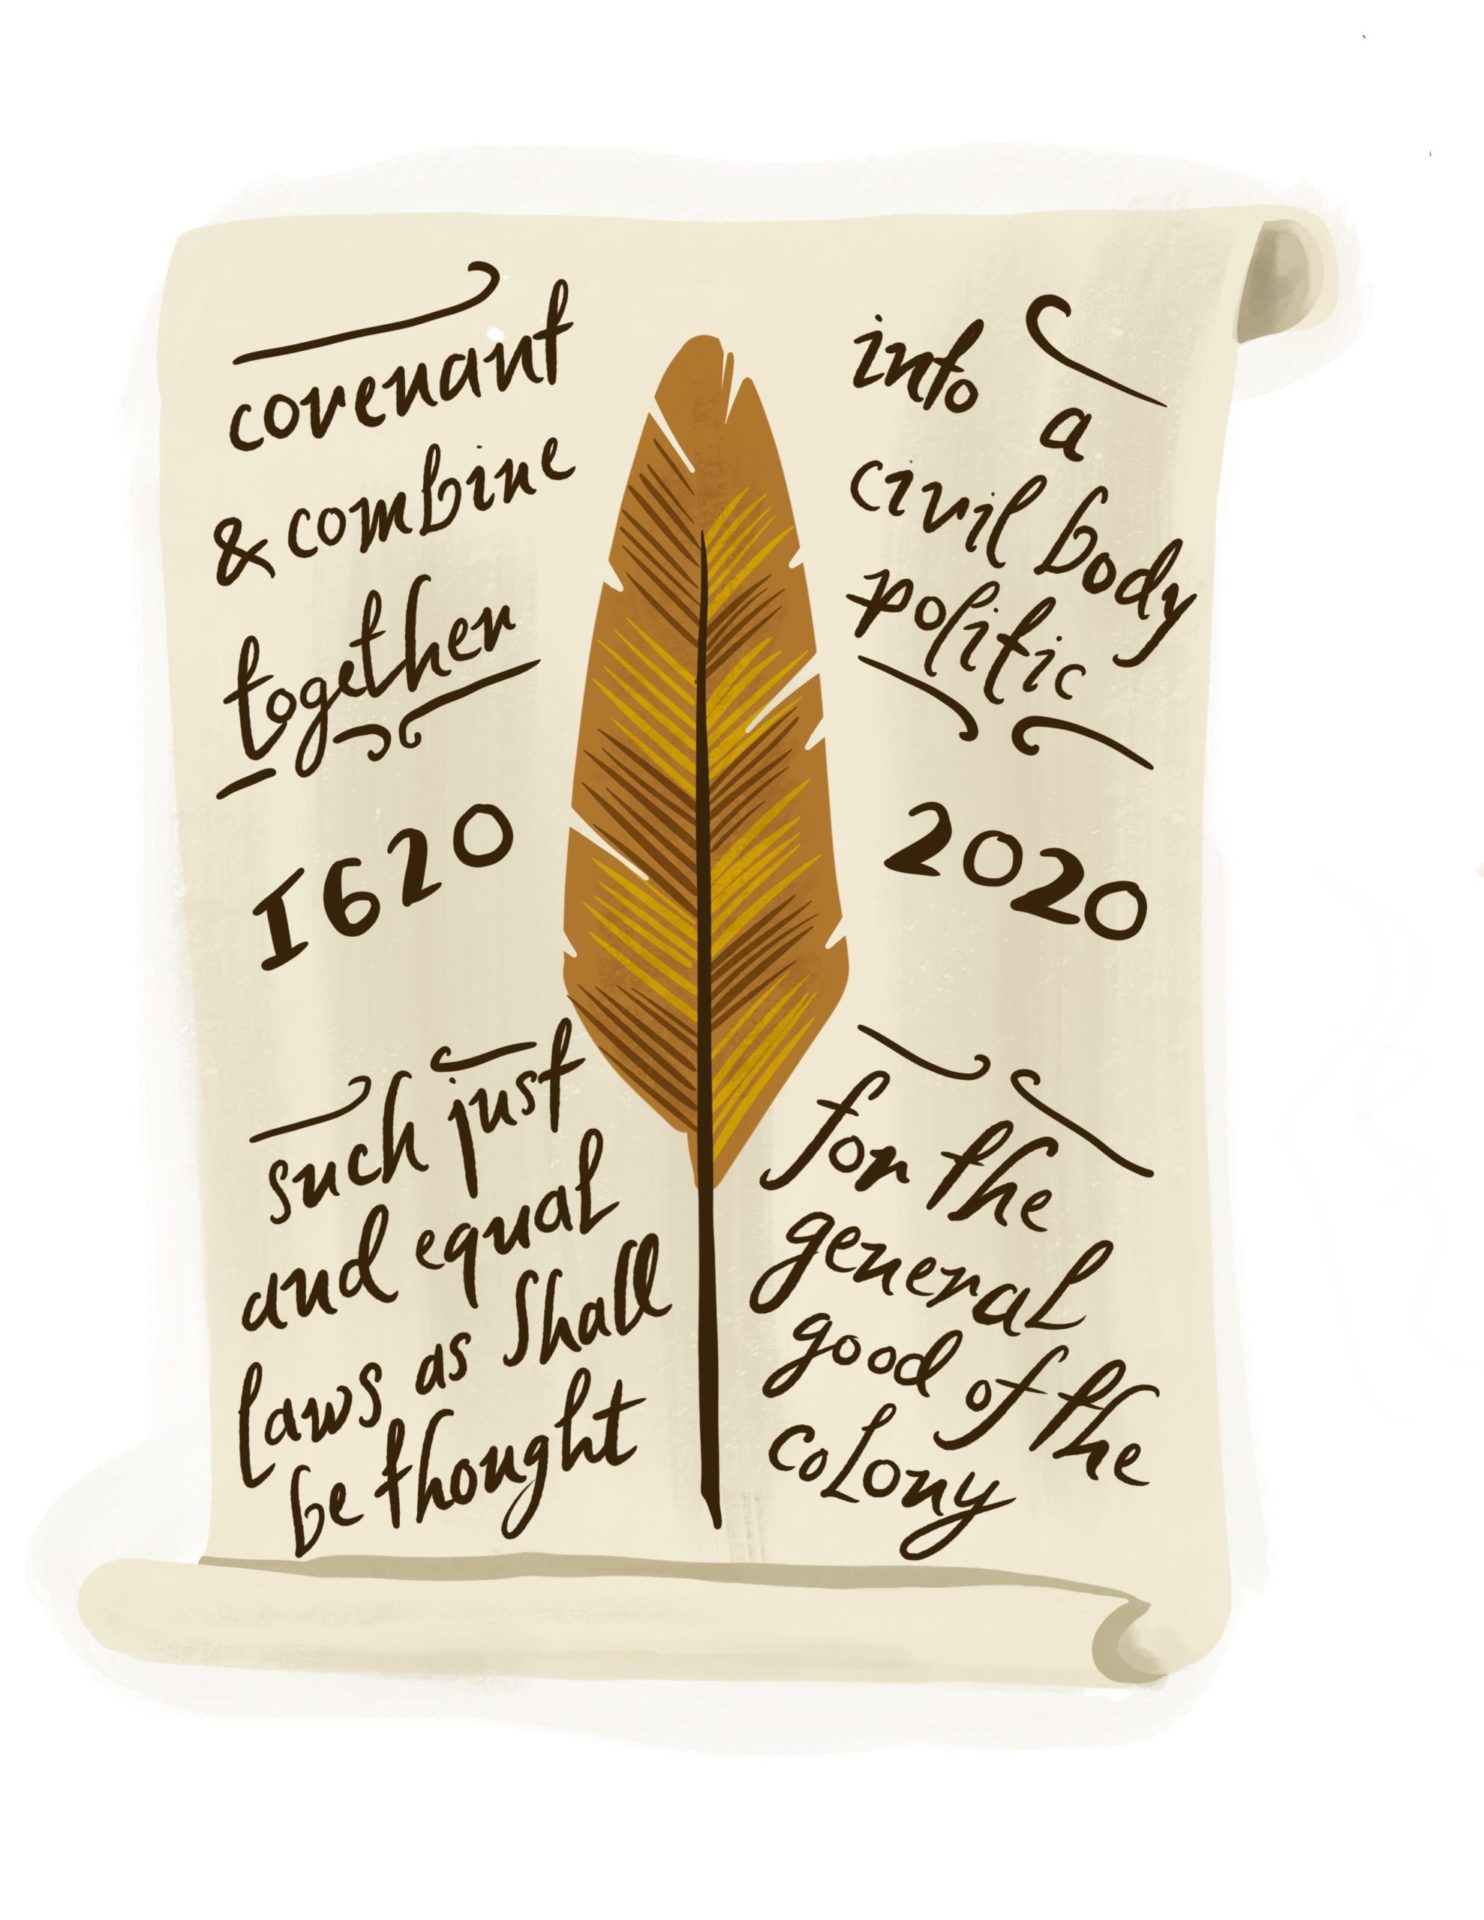 covenant
& combine
together
into a
civil body
politic
1620
2020
such just
and equal
laws as shall
be thought
for the
general
good of the
colony